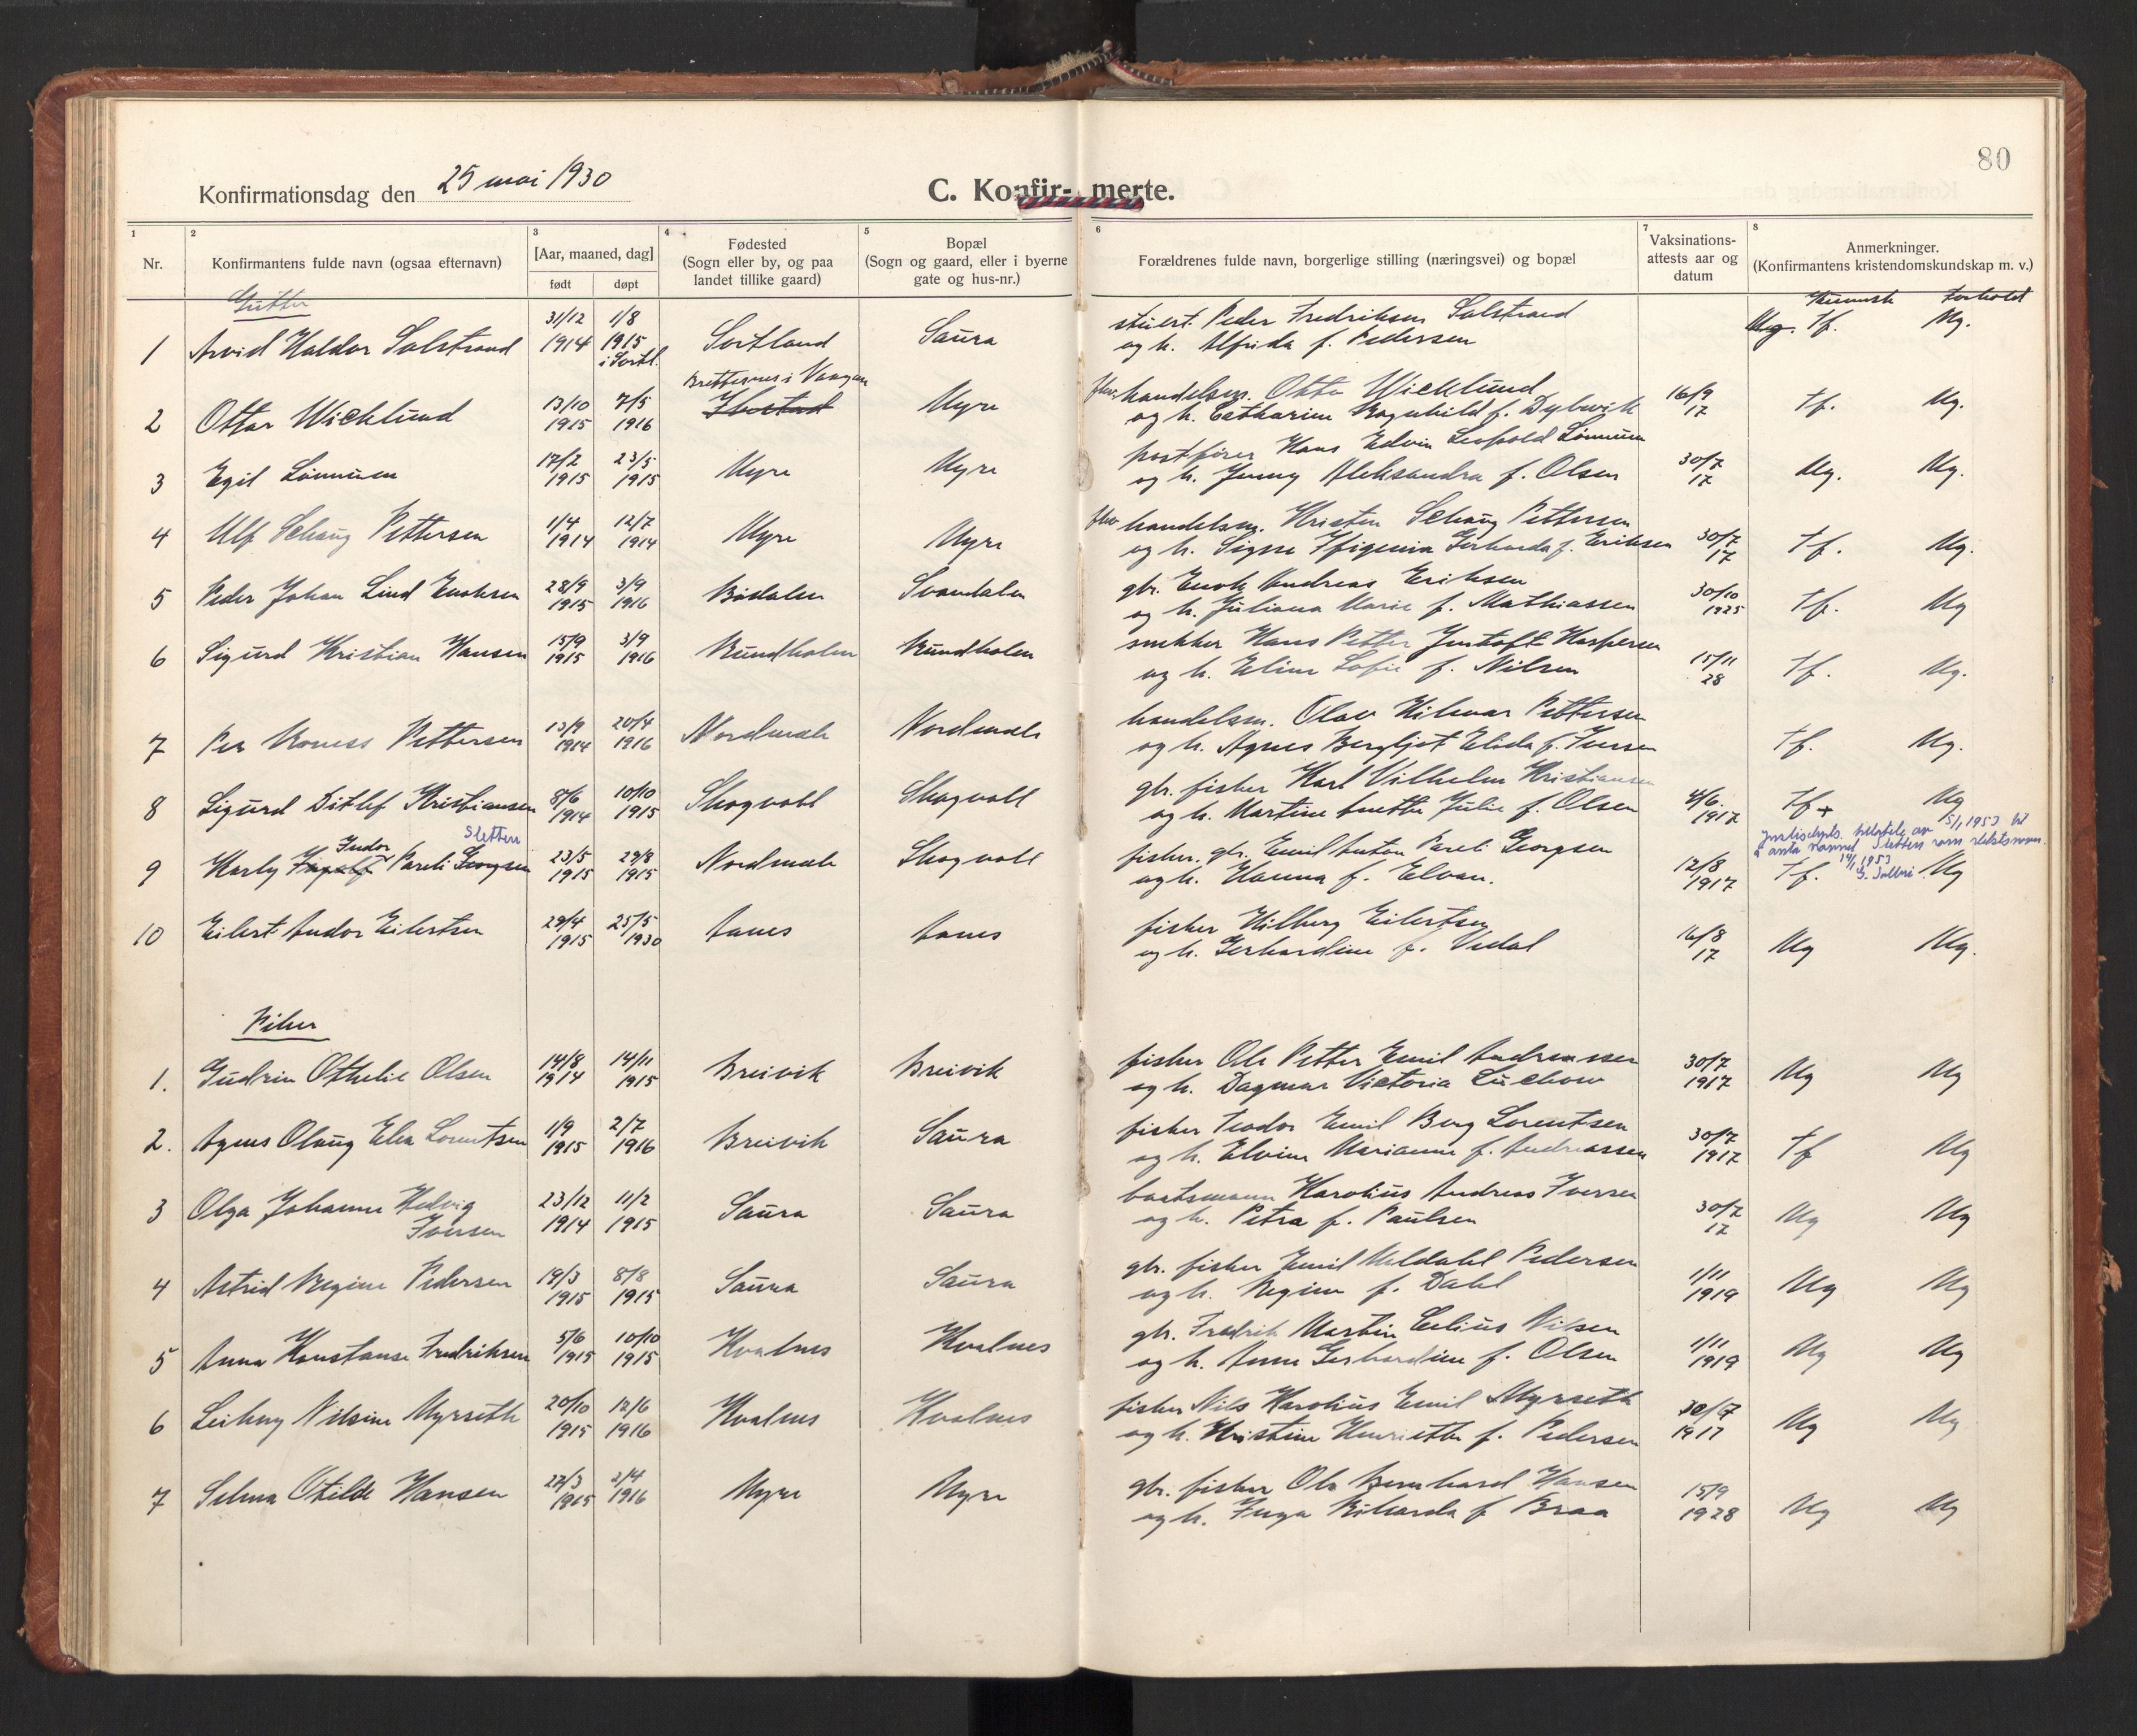 80
Konfirmationsdag den 25 mai 1930
C. Konfir- merte.
1 2 3 4 5 6 7 8
Nr. Konfirmantens fulde navn (ogsaa efternavn) [Aar, maaned, dag] født døpt Fødested (Sogn eller by, og paa landet tillike gaard) Bopæl (Sogn og gaard, eller i byerne gate og hus-nr.) Forældrenes fulde navn, borgerlige stilling (næringsvei) og bopæl Vaksinations-attests aar og datum Anmerkninger. (Konfirmantens kristendomskundskap m. v.)
Gutter
Kunnsk forhold
31/12 1/8 stuert. Peder Fredriksen Solstrand
1 Arvid Haldor Solstrand 1914 1915 i Sortl. Sortland Saura og h. Alfrida f. Pedersen Mg. Tf. Mg.
Brettesnes i Vaagan
fhv. handelsm. Otto Wicklund
2 Ottar Wicklund 13/10 1915 7/5 1916 Ibestad Myre og h. Catharine Ragnhild f. Dybwik 16/9 17 Tf. Mg.
postfører Hans Edvin Leopold Lønnum
3 Egil Lønnum 17/2 1915 23/5 1915 Myre Myre og h. Jenny Aleksandra f. Olsen 30/7 17 Mg. Mg.
fhv handelsm. Kristen Schaug Pettersen
4 Ulf Schaug Pettersen 1/4 1914 12/7 1914 Myre Myre og h. Signe Ifigenia Gerharda f. Eriksen 30/7 17 Tf. Mg.
gbr. Enok Andreas Eriksen
5 Peder Johan Lind Enoksen 28/9 1915 3/9 1916 Bødalen Svandalen og h. Juliana Marie f. Mathiassen 30/10 1925 Tf. Mg
snekker Hans Petter Jentoft Kaspersen
6 Sigurd Kristian Hansen 15/9 1915 3/9 1916 Rundholen Rundholen og h. Eline Sofie f. Nilsen 15/11 28 Tf. Mg.
handelsm. Olav Hilmar Pettersen
7 Per Roness Pettersen 13/9 1914 20/4 1916 Nordmele Nordmele og h. Agnes Bergljot Elida f. Iversen Tf. Mg.
gbr. fisker Karl Vilhelm Kristiansen
8 Sigurd Ditlef Kristiansen 8/6 1914 10/10 1915 Skogvoll Skogvoll og h. Martine Anette Julie f. Olsen 4/6. 1917 Tf + Mg
Justisdepts. tillatelse av 5/1 1953 til å anta navnet Sletten som slektsnavn.
14/1 1953
Indor Sletten
fisker. gbr. Emil Anton Pareli Georgsen
9 Harly Pareli Georgsen 23/5 1915 29/8 1915 Nordmele Skogvoll og h. Hanna f. Elvan. 12/8 1917 Tf. Mg
fisker Hilberg Eilertsen
10 Eilert Andor Eilertsen 29/4 1915 25/5 1930 Aanes Aanes og h. Gerhardine f. Vedal 16/8 17 Mg Mg.
Piker
fisker Ole Petter Emil Andreassen
1. Gudrun Othelie Olsen 14/8 1914 14/11 1915 Breivik Breivik og h. Dagmar Victoria Luchow 30/7 1917 Mg Mg
fisker Teodor Emil Berg Lorentsen
2. Agnes Olaug Elea Lorentsen 1/9 1915 2/7 1916 Breivik Saura og h. Elvine Marianne f. Andreassen 30/7 1917 Tf Mg
baatsmann Karolius Andreas Iversen
3 Olga Johanne Hedvig Iversen 23/12 1914 11/2 1915 Saura Saura og h. Petra f. Paulsen 30/7 17 Mg Mg
gbr. fisker Emil Meldahl Pedersen
4 Astrid Regine Pedersen 19/3 1915 8/8 1915 Saura Saura og h. Regine f. Dahl 1/11 1919 Mg Mg
gbr. Fredrik Martin Edius Nilsen
5 Anna Konstanse Fredriksen 5/6 1915 10/10 1915 Kvalnes Kvalnes og h. Anne Gerhardine f. Olsen 1/11 1919 Mg Mg
fisker Nils Karolius Emil Myrseth
6 Leikny Nilsine Myrseth 20/10 1915 12/6 1916 Kvalnes Kvalnes og h. Kristine Henriette f. Pedersen 30/7 1917 Mg Mg
gbr. fisker Ole Bernhard Hansen
7 Selma Otilde Hansen 22/3 1915 2/4 1916 Myre Myre og h. Inga Rikarda f Braa 15/9 1928 Mg Mg